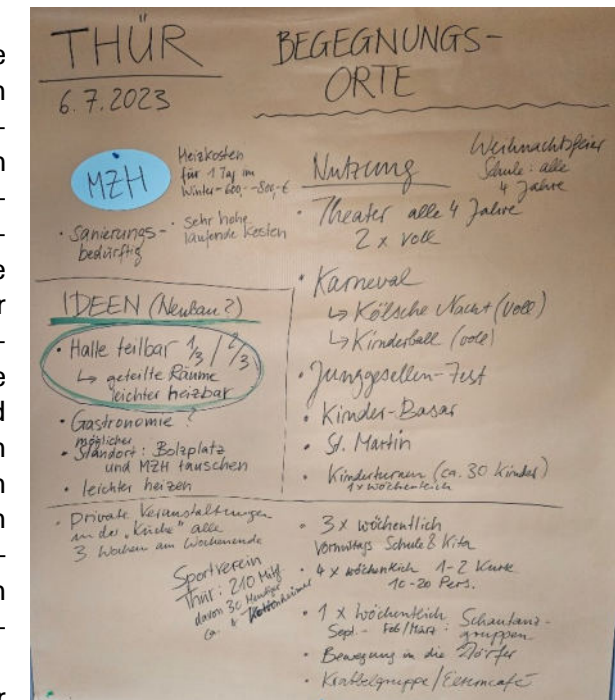 THÜR
6.7.2023
BEGEGNUNGS-
ORTE
MZH
Heizkosten
für 1 Tag im
Winter ~ 600,- - 800,- €
· Sanierungs-
bedürftig
· Sehr hohe
laufende Kosten
IDEEN (Neubau?)
· Halle teilbar 1/3 / 2/3
↳ geteilte Räume
leichter heizbar
· Gastronomie ?
· möglicher
Standort: Bolzplatz
und MZH tauschen
· leichter heizen
· Private Veranstaltungen
in der "Küche" alle
3 Wochen am Wochenende
Sportverein
Thür: 210 Mitgl.
davon 30
ca. Kottenheimer
Nutzung
Weihnachtsfeier
Schule: alle
4 Jahre
· Theater alle 4 Jahre
2 x voll
· Karneval
↳ Kölsche Nacht (voll)
↳ Kinderball (voll)
· Junggesellen-Fest
· Kinder-Basar
· St. Martin
· Kinderturnen (ca. 30 Kinder)
1x wöchentlich
· 3 x wöchentlich
Vormittags Schule & Kita
· 4 x wöchentlich 1-2 Kurse
10-20 Pers.
· 1 x wöchentlich Schautanz-
gruppen
Sept. - Feb/März :
· Bewegung in die Dörfer
· Krabbelgruppe/Elterncafé
e
n
-
n
-
-
e
r
-
e
d
n
n
n
-
n
-
r